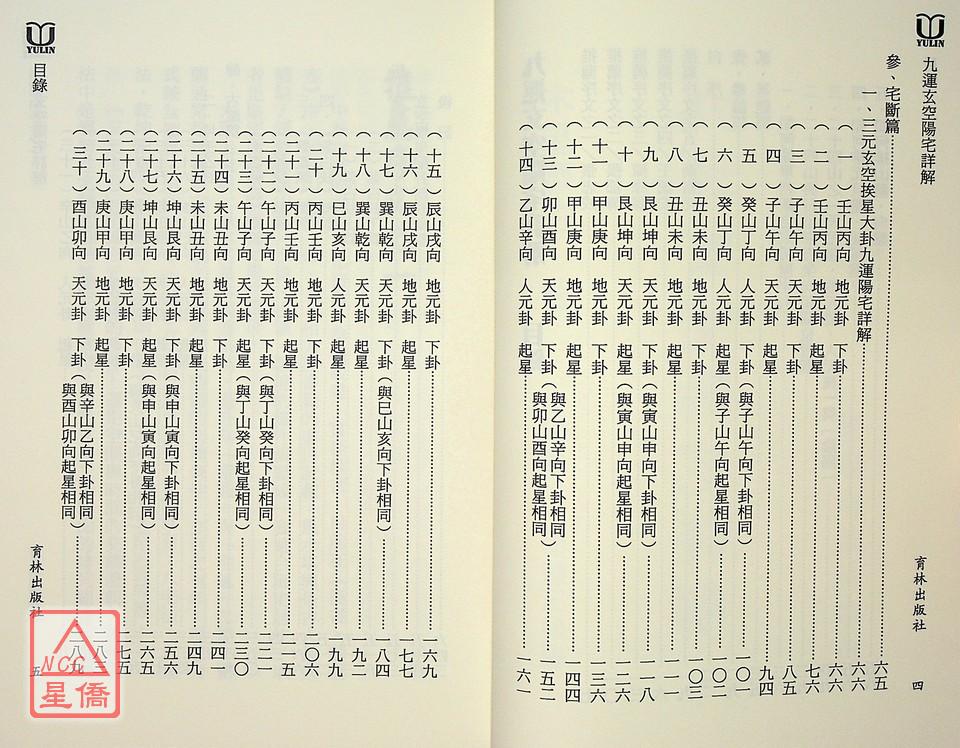 YULIN
九運玄空陽宅詳解
參、宅斷篇……六五
一、三元玄空挨星大卦九運陽宅詳解……六六
（一）壬山丙向　地元卦　下卦……六六
（二）壬山丙向　地元卦　起星……七六
（三）子山午向　天元卦　下卦……八五
（四）子山午向　天元卦　起星……九四
（五）癸山丁向　人元卦　下卦（與子山午向下卦相同）……一〇一
（六）癸山丁向　人元卦　起星（與子山午向起星相同）……一〇二
（七）丑山未向　地元卦　下卦……一〇二
（八）丑山未向　地元卦　起星……一一一
（九）艮山坤向　天元卦　下卦（與寅山申向下卦相同）……一一八
（十）艮山坤向　天元卦　起星（與寅山申向起星相同）……一二六
（十一）甲山庚向　地元卦　下卦……一三六
（十二）甲山庚向　地元卦　起星……一四四
（十三）卯山酉向　天元卦　下卦（與乙山辛向下卦相同）……一五二
（與卯山酉向起星相同）
（十四）乙山辛向　人元卦　起星……一六一
育林出版社
四
YULIN
目錄
（十五）辰山戌向　地元卦　下卦……一六九
（十六）辰山戌向　地元卦　起星……一七七
（十七）巽山乾向　天元卦　下卦（與巳山亥向下卦相同）……一八四
（十八）巽山乾向　天元卦　起星……一九二
（十九）巳山亥向　人元卦　起星……一九九
（二十）丙山壬向　地元卦　下卦……二〇六
（二十一）丙山壬向　地元卦　起星……二一五
（二十二）午山子向　天元卦　下卦（與丁山癸向下卦相同）……二二一
（二十三）午山子向　天元卦　起星（與丁山癸向起星相同）……二三〇
（二十四）未山丑向　地元卦　下卦……二四一
（二十五）未山丑向　地元卦　起星……二四九
（二十六）坤山艮向　天元卦　下卦（與申山寅向下卦相同）……二五六
（二十七）坤山艮向　天元卦　起星（與申山寅向起星相同）……二六五
（二十八）庚山甲向　地元卦　下卦……二七五
（二十九）庚山甲向　地元卦　起星……二八三
（三十）酉山卯向　天元卦　下卦（與辛山乙向下卦相同）……二八九
（與酉山卯向起星相同）
育林出版社
五
NCC
星僑